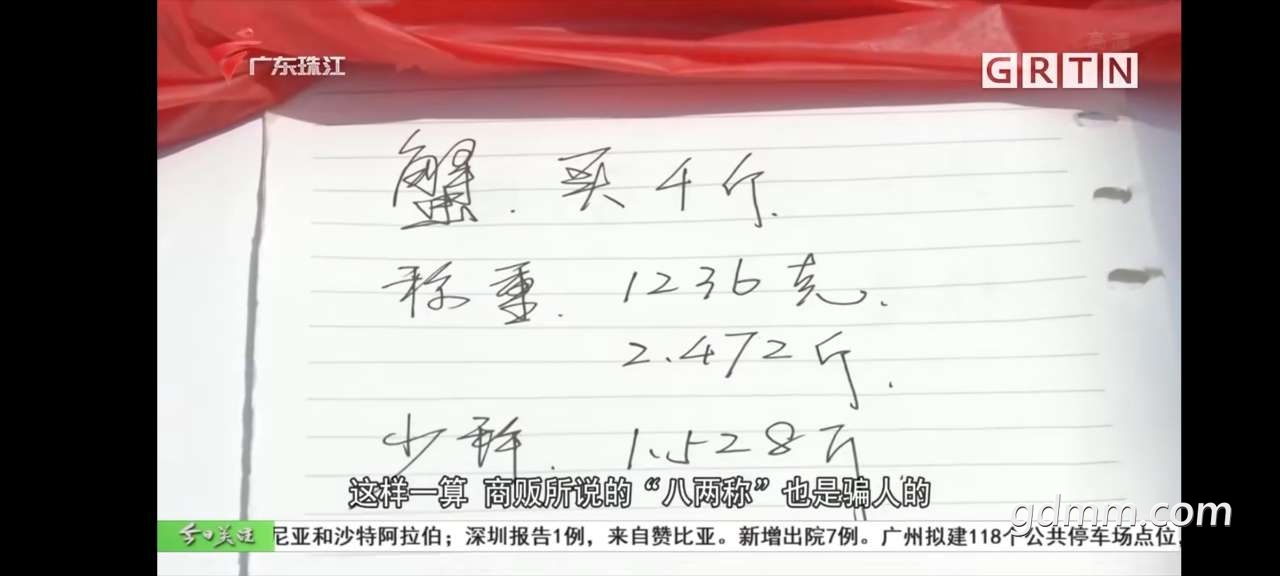 广东珠江
GRTN
蟹. 买4斤.
称重. 1236克.
2.472斤.
少称. 1.528斤
这样一算 商贩所说的“八两称”也是骗人的
gdmm.com
今日关注 尼亚和沙特阿拉伯；深圳报告1例，来自赞比亚。新增出院7例。广州拟建118个公共停车场点位，